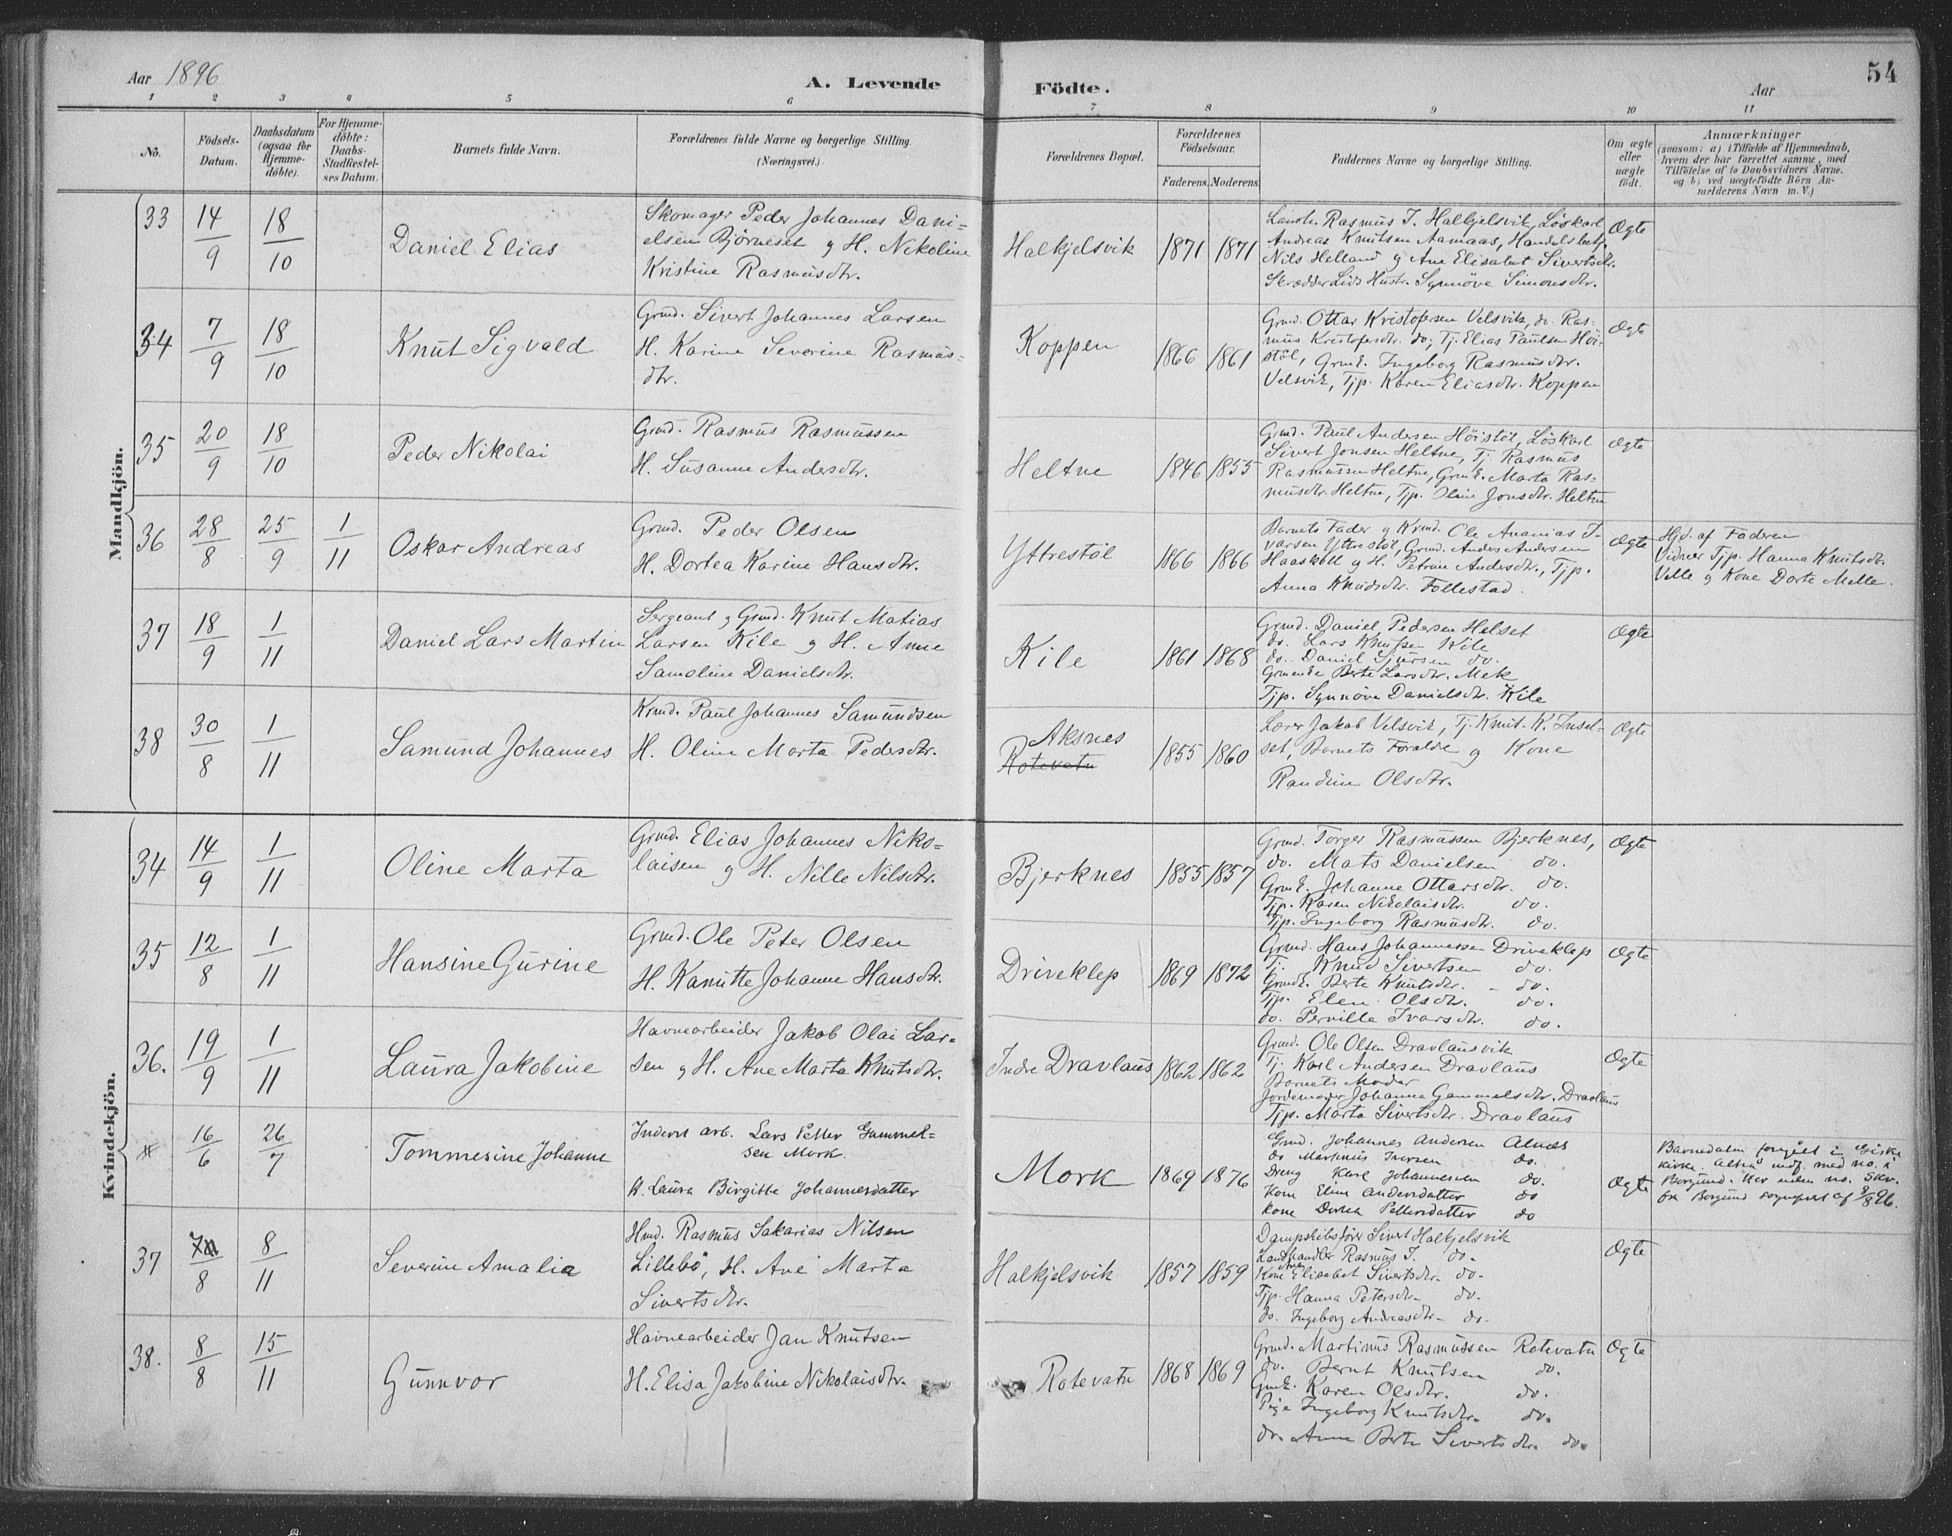 Aar 1896
A. Levende Födte.
Aar
54
1 2 3 4 5 6 7 8 9 10 11
No.
Födsels-Datum.
Daabsdatum (ogsaa for Hjemme-döbte).
For Hjemme-döbte: Daabs-Stadfæstel-ses Datum.
Barnets fulde Navn.
Forældrenes fulde Navne og borgerlige Stilling. (Næringsvei.)
Forældrenes Bopæl.
Forældrenes Födselsaar.
Faderens. Moderens.
Faddernes Navne og borgerlige Stilling.
Om ægte eller uægte födt.
Anmærkninger
(saasom: a) i Tilfælde af Hjemmedaab,
hvem der har forrettet samme, med
Tilföielse af to Daabsvidners Navne.
og b) ved uægtefödte Börn An-
melderens Navn m. V.)
Mandkjön.
33 14/9 18/10 Daniel Elias
Skomager Peder Johannes Dani-
elsen Bjørneset g H. Nikoline
Kristine Rasmusdtr.
Halkjelsvik 1871 1871
Landh. Rasmus J. Halkjelsvik, Løskarl
Andreas Knutsen Aamaas, Handelsbetj.
Nils Helland g Ane Elisabet Sivertsdtr.
Skrædder Lids Hustr. Synnøve Simonsdtr.
Ægte
34 7/9 18/10 Knut Sigvald
Grmd. Sivert Johannes Larsen
H. Karine Severine Rasmus-
dtr.
Koppen 1866 1861
Grmd. Ottar Kristofersen Velsvik, do. Ras-
mus Kristofersdtr. do, Tj. Elias Paulsen Höi-
stöl, GrmE. Ingeborg Rasmusdtr.
Velsvik, Tjp. Karen Eliasdtr. Koppen
Ægte
35 20/9 18/10 Peder Nikolai
Grmd. Rasmus Rasmussen
H. Susanne Andersdtr.
Heltne 1846 1855
Grmd. Paul Andersen Höistöl, Löskarl
Sivert Jonsen Heltne, Tj. Rasmus
Rasmussen Heltne, GrmE. Marta Ras-
musdtr. Heltne, Tjp. Oline Jonsdtr. Heltne
Ægte
36 28/8 25/9 1/11 Oskar Andreas
Grmd. Peder Olsen
H. Dortea Karine Hansdtr.
Yttrestöl 1866 1866
Barnets Fader g Krmd. Ole Ananias I-
varsen Yttrestöl, Grmd. Anders Andersen
Haaskoll g H. Petrine Andersdtr., Tjp.
Anna Knudsdtr. Follestad.
Ægte
Hjd. af Faderen
Vidner Tjp. Hanna Knutsdtr.
Velle g Kone Dorte Melle.
37 18/9 1/11 Daniel Lars Martin
Sergeant g Grmd. Knut Matias
Larsen Kile g H. Anne
Samoline Danielsdtr.
Kile 1861 1868
Grmd. Daniel Pedersen Helset
do. Lars Knutsen Kile
do. Daniel Sjursen do.
Grmende Berte Larsdtr. Mek
Tjp. Synnöve Danielsdtr. Kile
Ægte
38 30/8 1/11 Samund Johannes
Krmd. Paul Johannes Samundsen
H. Oline Marta Pedersdtr.
Aksnes
Rotevatn
1855 1860
Lærer Jakob Velsvik, Tj. Knut K. Insel-
set, Barnets Forældre g Kone
Randine Olsdtr.
Ægte
Kvindekjön.
34 14/9 1/11 Oline Marta
Grmd. Elias Johannes Niko-
laisen g H. Nille Nilsdtr.
Bjerknes 1855 1857
Grmd. Torger Rasmussen Bjerknes,
do. Mats Danielsen do.
GrmE. Johanne Ottarsdtr. do.
Tjp. Karen Nikolaisdtr. do.
Tjp. Ingeborg Rasmusdtr. do.
Ægte
35 12/8 1/11 Hansine Gurine
Grmd. Ole Peter Olsen
H. Kanutte Johanne Hansdtr.
Driveklep 1869 1872
Grmd. Hans Johannessen Driveklep
Tj. Knud Sivertsen do.
GrmdE. Berte Knutsdtr. - do.
Tjp. Elen Olsdtr. do.
do. Pernille Ivarsdtr. do.
Ægte
36. 19/9 1/11 Laura Jakobine
Havnearbeider Jakob Olai Lar-
sen g H. Ane Marta Knutsdtr.
Indre Dravlaus 1862 1862
Grmd. Ole Olsen Dravlausvik
Tj. Karl Andersen Dravlaus
Barnets Moder
Jordemoder Johanna Gammelsdtr. Dravlaus
Tjp. Marta Sivertsdtr. Dravlaus
Ægte
16/6 26/7 Tommesine Johanne
Inderst arb. Lars Petter Gammel-
sen Mork.
H. Laura Birgitte Johannesdatter
Mork 1869 1876
Grmd. Johannes Andersen Alnæs
do Martinus Iversen do.
Dreng Karl Johannessen do.
Kone Eline Andersdatter do
Kone Dorthea Pettersdatter do
Ægte
Barnedaaben foregået i Giske
kirke. Altså indf. med no. i
Borgund. Her uden no. Skr.
fra Borgund sogneprest af 8/8 96.
37 8 8/11 Severine Amalia
Hmd. Rasmus Sakarias Nilsen
Lillebö, H. Ane Marta
Sivertsdtr.
Halkjelsvik 1857 1859
Dampskibsförer Sivert Halkjelsvik
Landhandler Rasmus J. do.
Kone Ane Elisabet Sivertsdtr. do.
Tjp. Hanna Petersdtr. do.
do. Ingeborg Andreasdtr. do.
Ægte
38. 8/8 15/11 Gunnvor
Havnearbeider Jan Knutsen
H. Elisa Jakobine Nikolaisdtr.
Rotevatn 1868 1869
Grmd. Martinus Rasmussen Rotevatn
do. Bernt Knutsen do.
GrmE. Karen Olsdtr. do.
Pige Ingeborg Knutsdtr. do.
do. Anne Berte Sivertsdtr. do.
Ægte